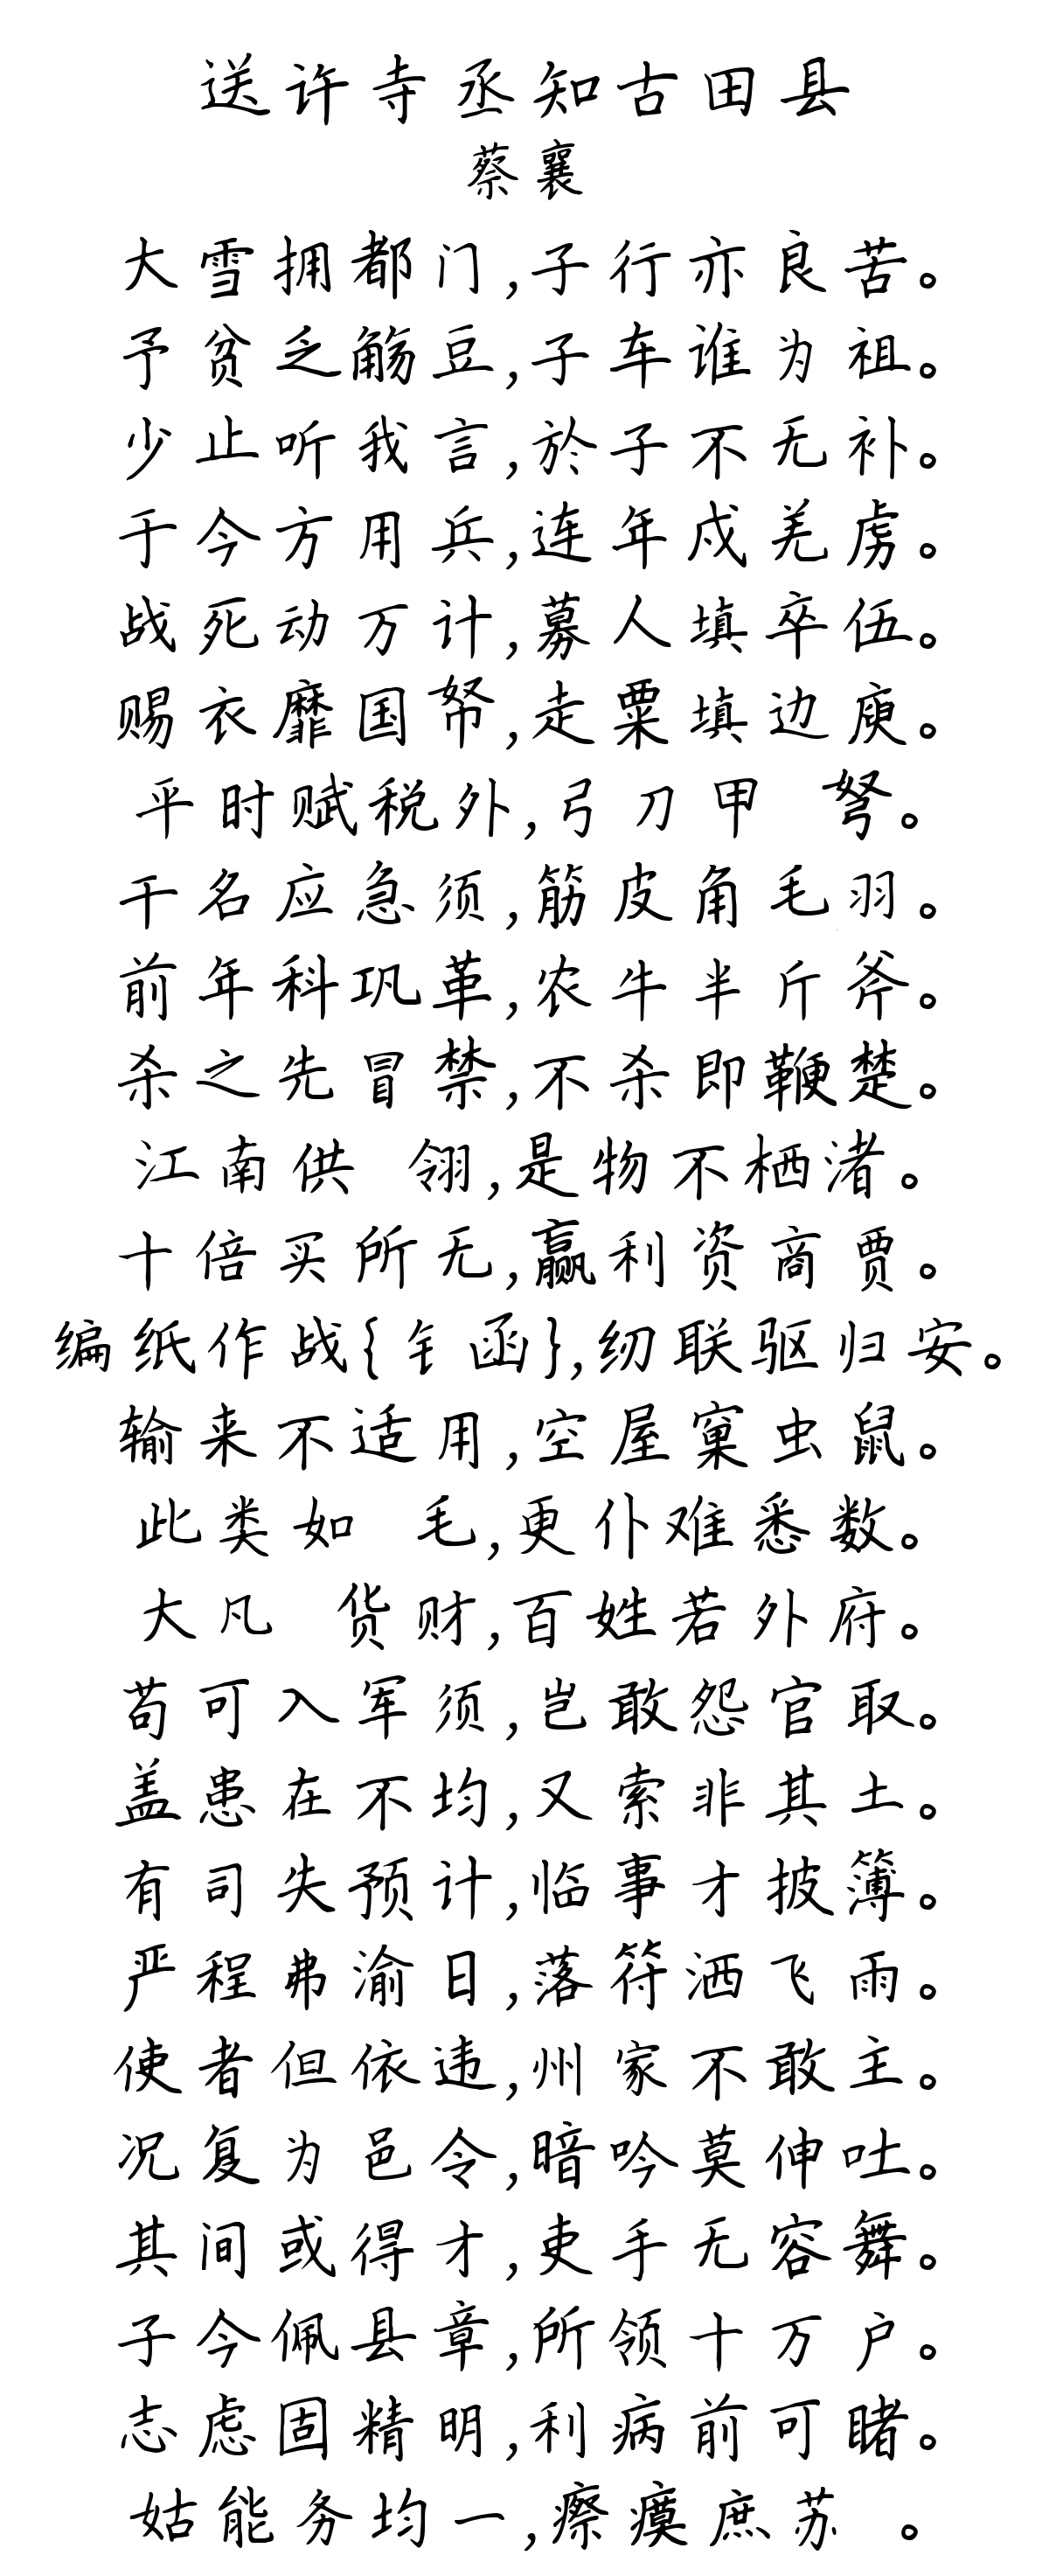 送许寺丞知古田县
蔡襄
大雪拥都门,子行亦良苦。
予贫乏觞豆,子车谁为祖。
少止听我言,於子不无补。
于今方用兵,连年戍羌虏。
战死动万计,募人填卒伍。
赐衣靡国帑,走粟填边庾。
平时赋税外,弓刀甲 弩。
干名应急须,筋皮角毛羽。
前年科巩革,农牛半斤斧。
杀之先冒禁,不杀即鞭楚。
江南供 翎,是物不栖渚。
十倍买所无,赢利资商贾。
编纸作战{钅函},纫联驱归安。
输来不适用,空屋窠虫鼠。
此类如 毛,更仆难悉数。
大凡 货财,百姓若外府。
苟可入军须,岂敢怨官取。
盖患在不均,又索非其土。
有司失预计,临事才披簿。
严程弗渝日,落符洒飞雨。
使者但依违,州家不敢主。
况复为邑令,暗吟莫伸吐。
其间或得才,吏手无容舞。
子今佩县章,所领十万户。
志虑固精明,利病前可睹。
姑能务均一,瘵瘼庶苏 。